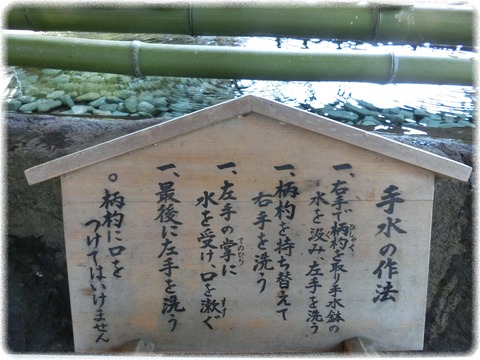 手水の作法
一、右手で柄杓を取り手水鉢の
水を汲み左手を洗う
一、柄杓を持ち替えて
右手を洗う
一、左手の掌に
水を受け口を漱ぐ
一、最後に左手を洗う
○柄杓に口を
つけてはいけません